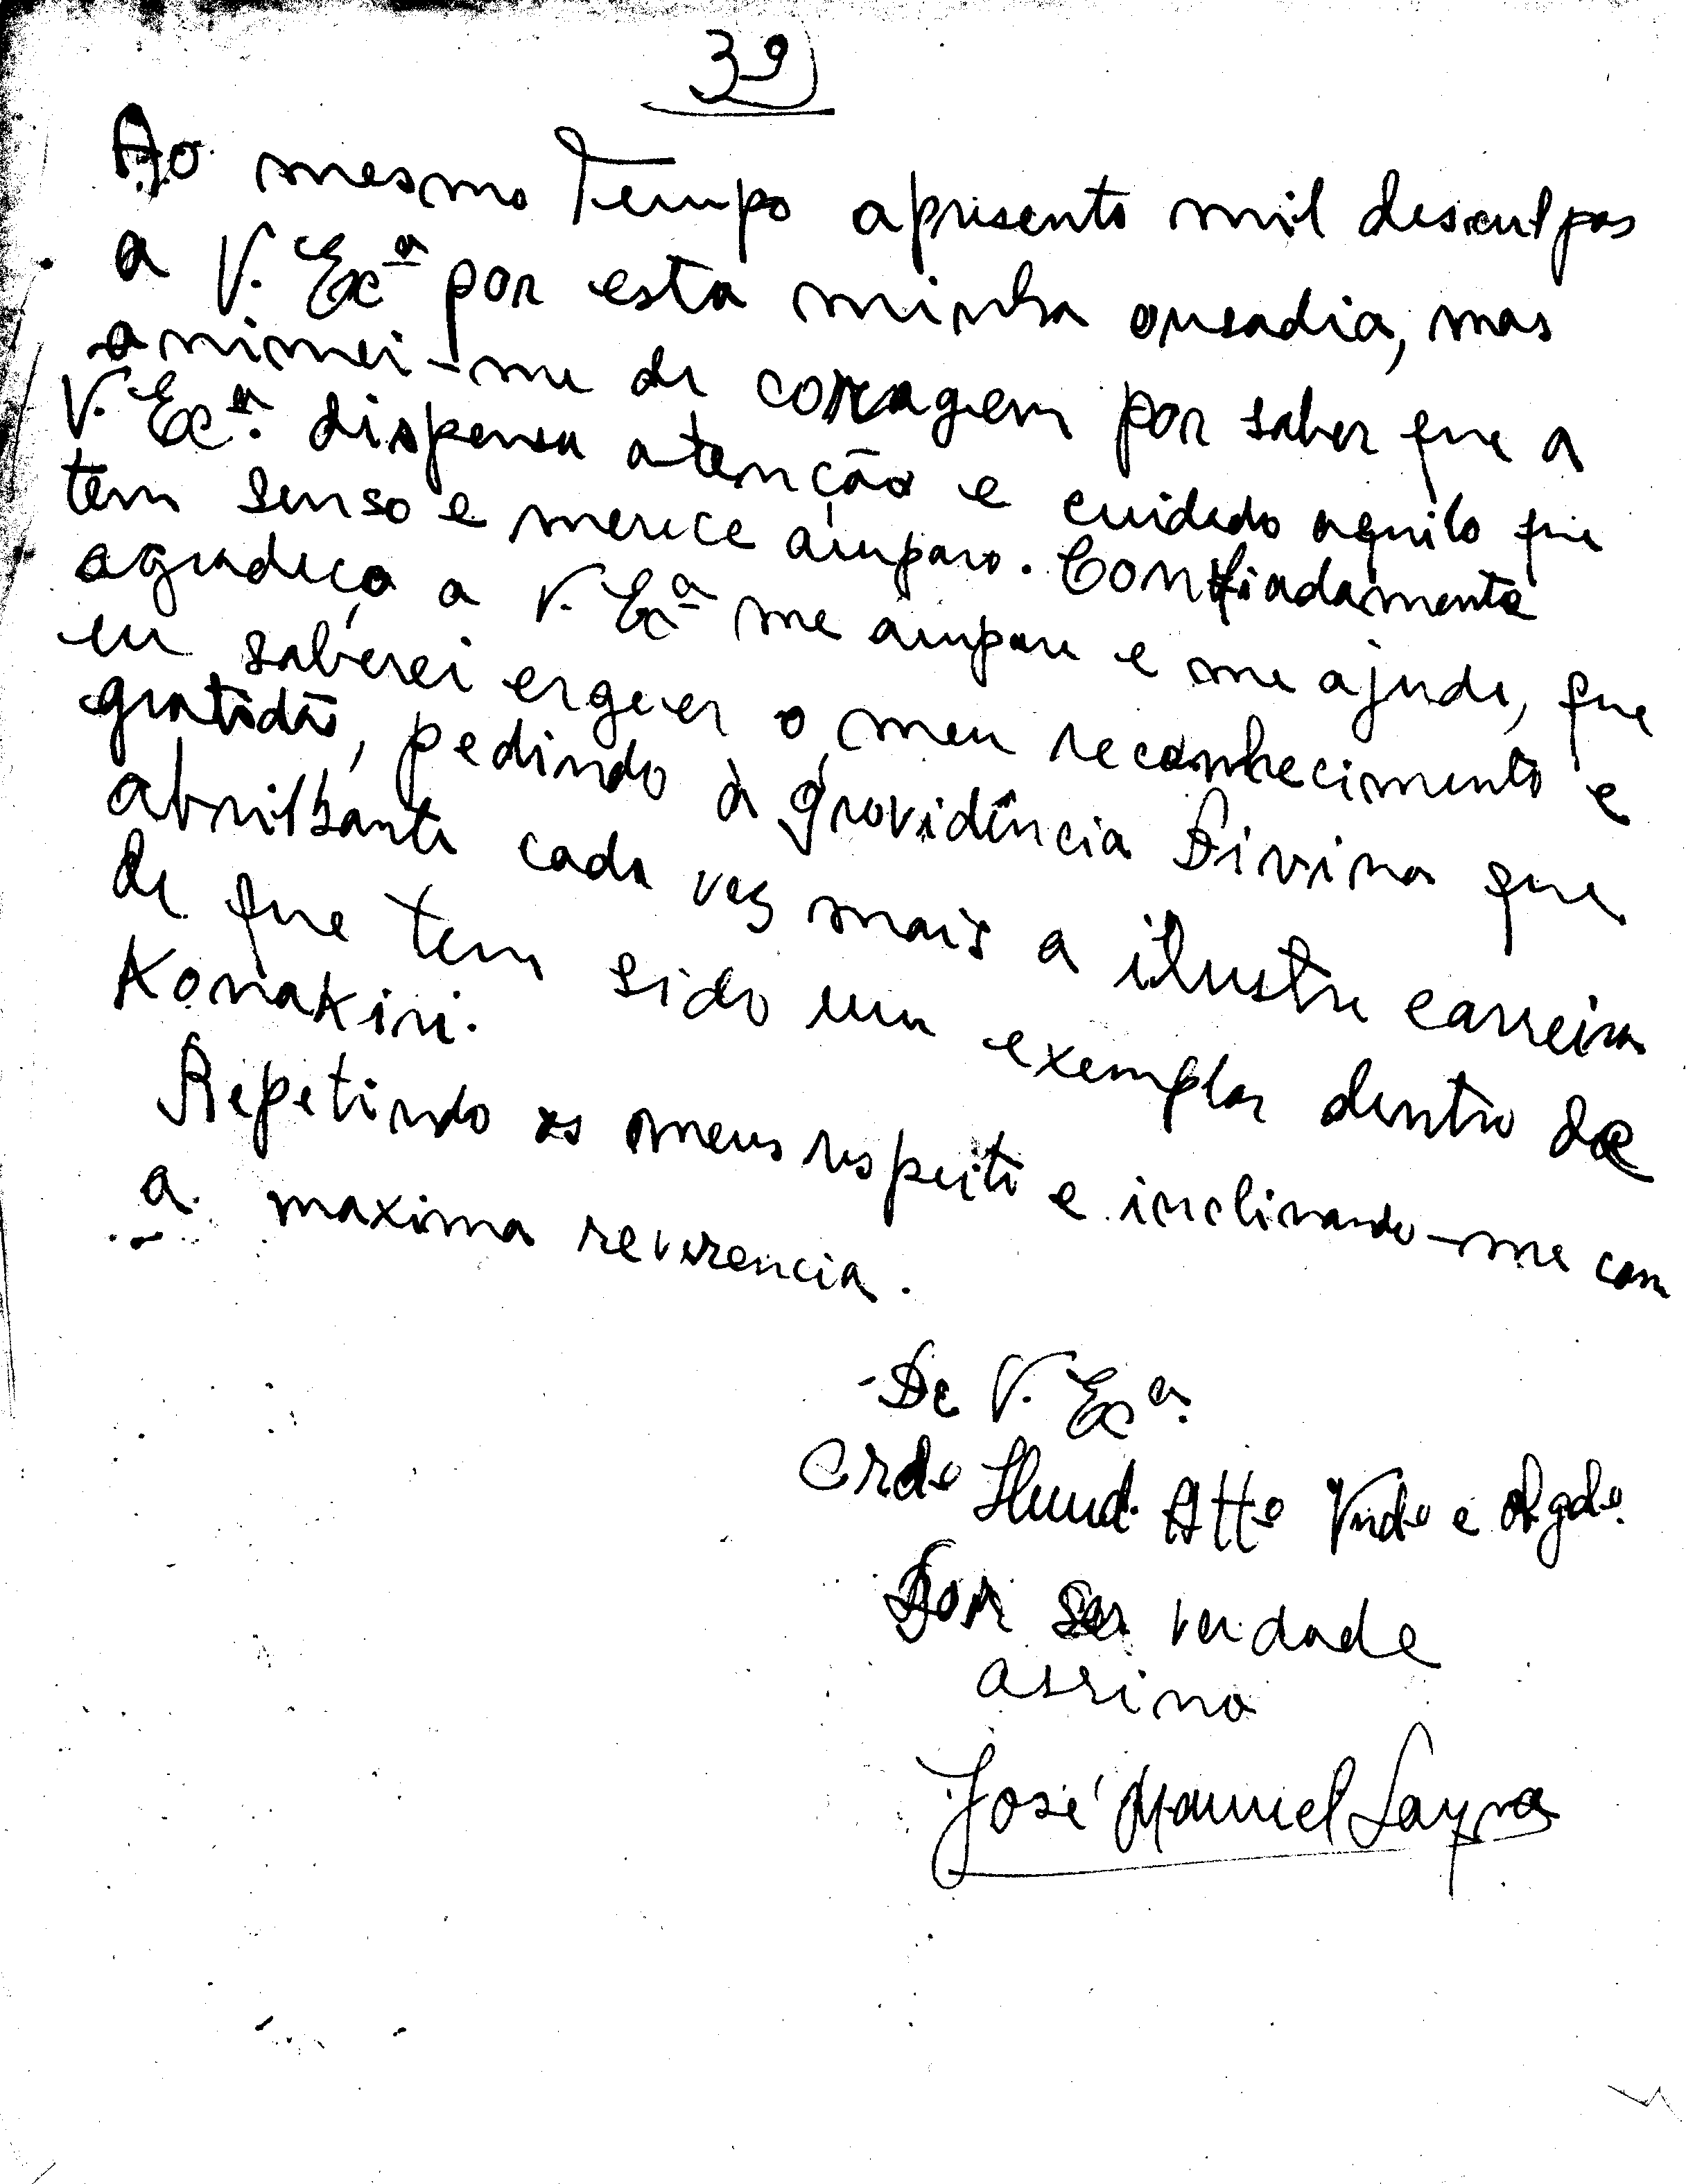 39
Ao mesmo tempo apresento mil desculpas
a V. Exª por esta minha ousadia, mas
animei-me de coragem por saber que a
V. Exª. dispensa atenção e cuidado aquilo que
tem senso e merece amparo. Confiadamente
agradeço a V. Exª me ampare e me ajude, que
eu saberei erguer o meu reconhecimento e
gratidão, pedindo à Providência Divina que
abrilhante cada vez mais a ilustre carreira
de que tem sido um exemplar dentro de
Konakiri.
Repetindo os meus respeito e inclinando-me com
a maxima reverencia.
De V. Exª.
Crdo Humd. Atto Vndo e Obgdo.
Por ser verdade
assino
José Manuel